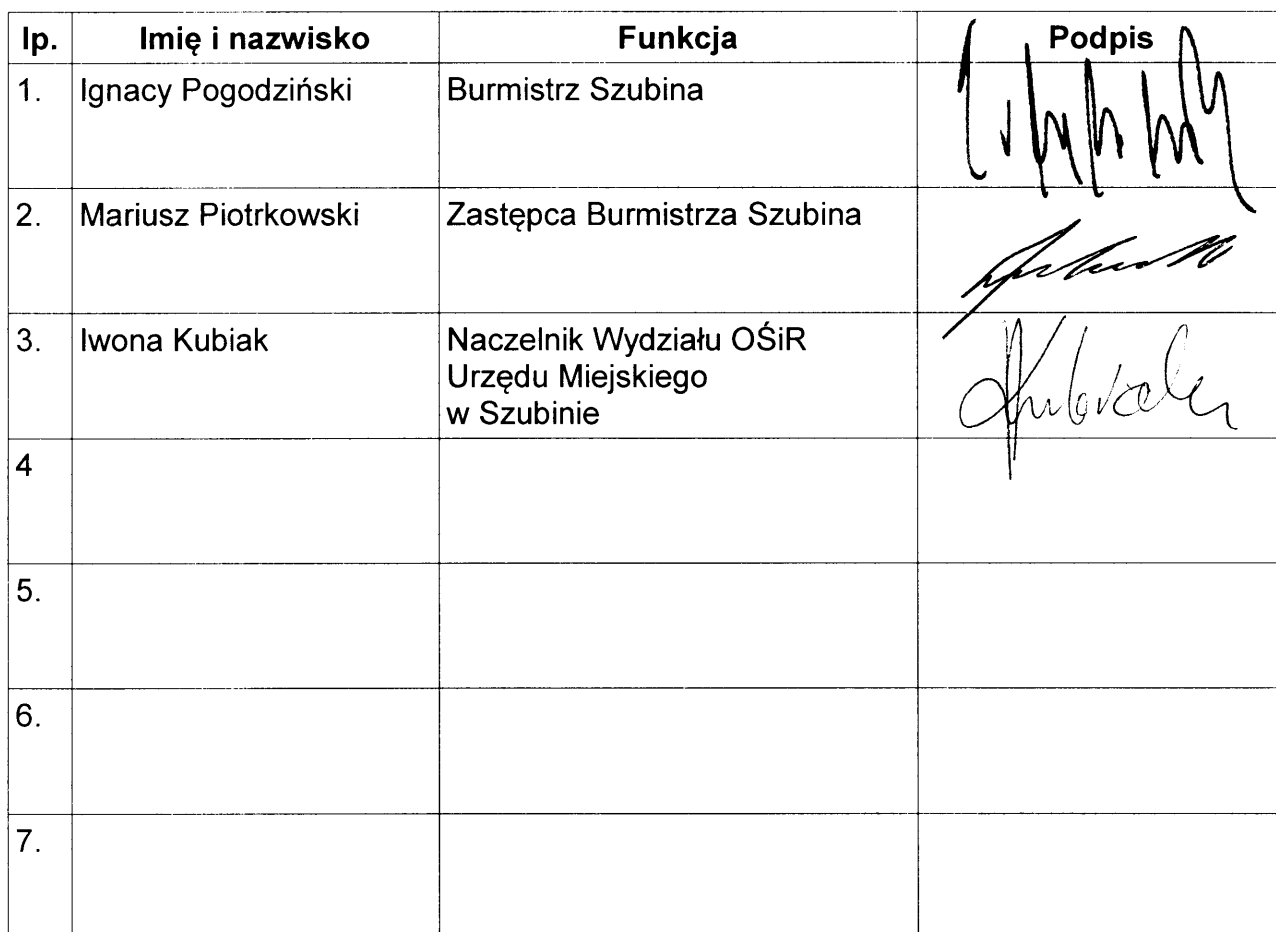 lp. Imię i nazwisko Funkcja Podpis
1. Ignacy Pogodziński Burmistrz Szubina
2. Mariusz Piotrkowski Zastępca Burmistrza Szubina
3. Iwona Kubiak Naczelnik Wydziału OŚiR
Urzędu Miejskiego
w Szubinie
4
5.
6.
7.